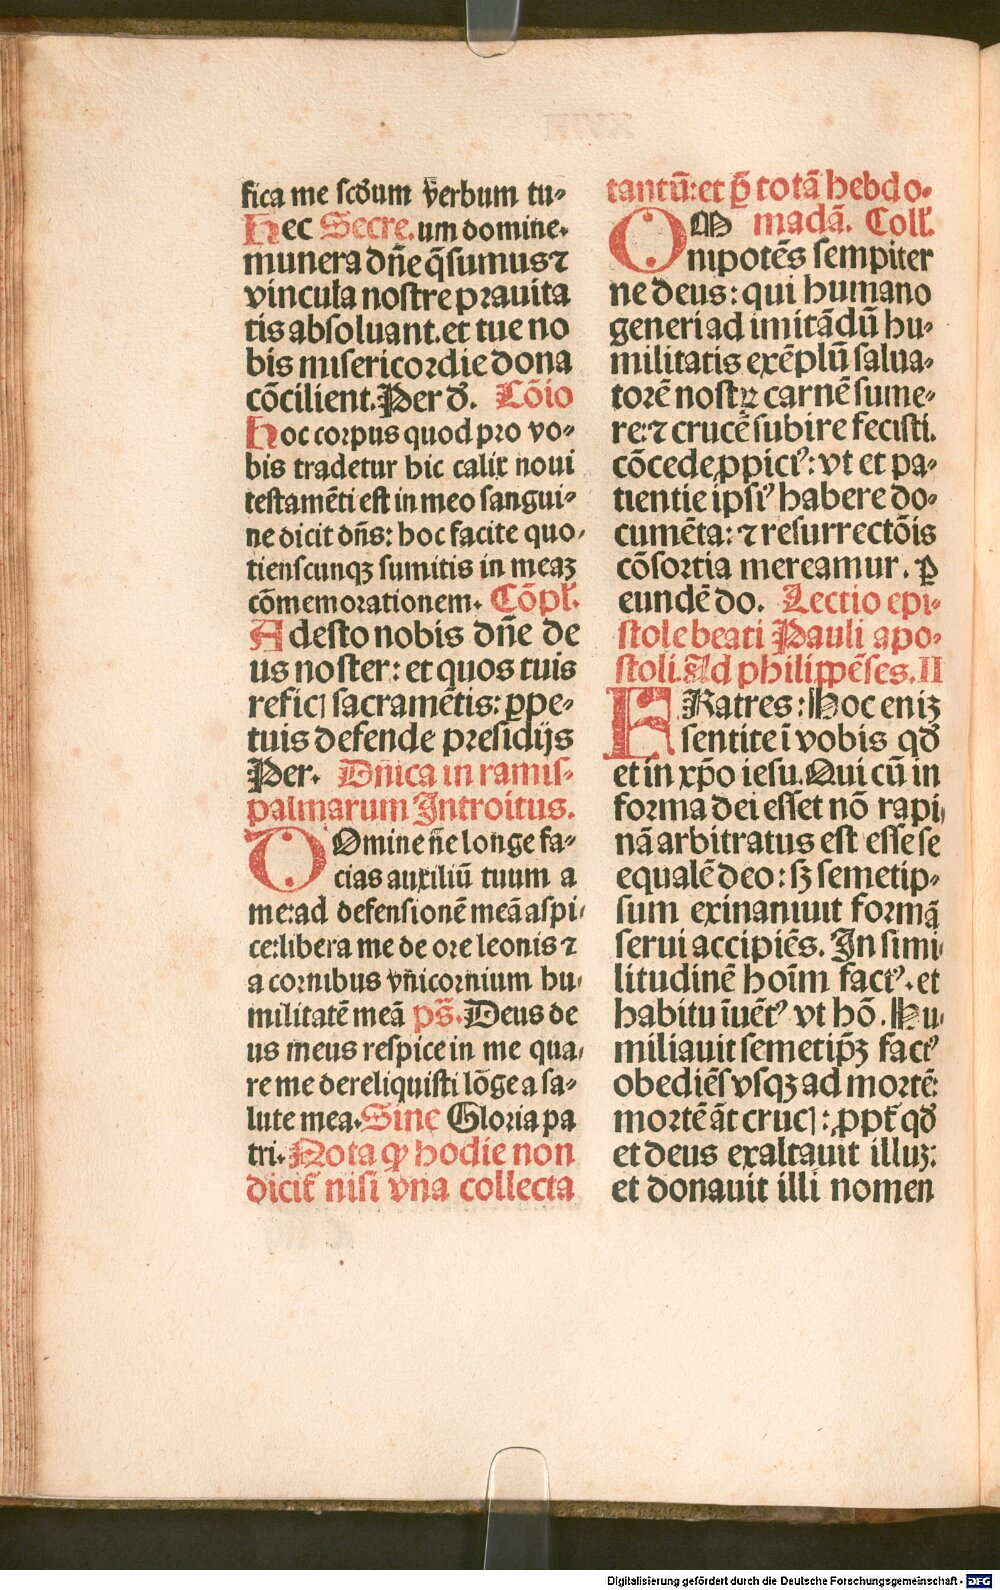 fica me scd̄um v̄erbum tu-
Hec Secre. um domine.
munera dn̄e q̄sumus ⁊
vincula nostre prauita
tis absoluant. et tue no
bis misericordie dona
cōcilient. Per d̄. Cōio
Hoc corpus quod pro vo-
bis tradetur hic calix noui
testamēti est in meo sangui-
ne dicit dn̄s: hoc facite quo-
tienscunqꝫ sumitis in meaꝫ
cōmemorationem. Cōpl.
Adesto nobis dn̄e de
us noster: et quos tuis
reficis sacramētis: ꝑpe-
tuis defende presidijs
Per. Dn̄ica in ramis-
palmarum Introitus.
DOmine n̄e longe fa-
cias auxiliū tuum a
me: ad defensionē meā aspi-
ce: libera me de ore leonis ⁊
a cornibus vn̄icornium hu-
militatē meā ps̄. Deus de
us meus respice in me qua-
re me dereliquisti lōge a sa-
lute mea. Sine Gloria pa
tri. Nota ꝙ hodie non
dicit̄ nisi vna collecta
tantū: et ꝑ totā hebdo-
OM madā. Coll.
nipotēs sempiter
ne deus: qui humano
generi ad imitādū hu-
militatis exēplū salua-
torē nostꝝ carnē sume-
re: ⁊ crucē subire fecisti.
cōcede ꝓpiciꝰ: vt et pa-
tientie ipsiꝰ habere do-
cumēta: ⁊ resurrectōis
cōsortia mereamur. ꝑ
eundē do. Lectio epi-
stole beati Pauli apo-
stoli. Ad philippēses. II
FRatres: Hoc eniꝫ
sentite ī vobis qd̄
et in xp̄o iesu. Qui cū in
forma dei esset nō rapi-
nā arbitratus est esse se
equalē deo: sꝫ semetip-
sum exinaniuit formā
serui accipiēs. In simi-
litudinē hoīm factꝰ. et
habitu īuētꝰ vt hō. Hu-
miliauit semetip̄ꝫ factꝰ
obediēs vsqꝫ ad mortē:
mortē āt crucis: ꝓpt̄ qd̄
et deus exaltauit illuꝫ:
et donauit illi nomen
Digitalisierung gefördert durch die Deutsche Forschungsgemeinschaft - DFG